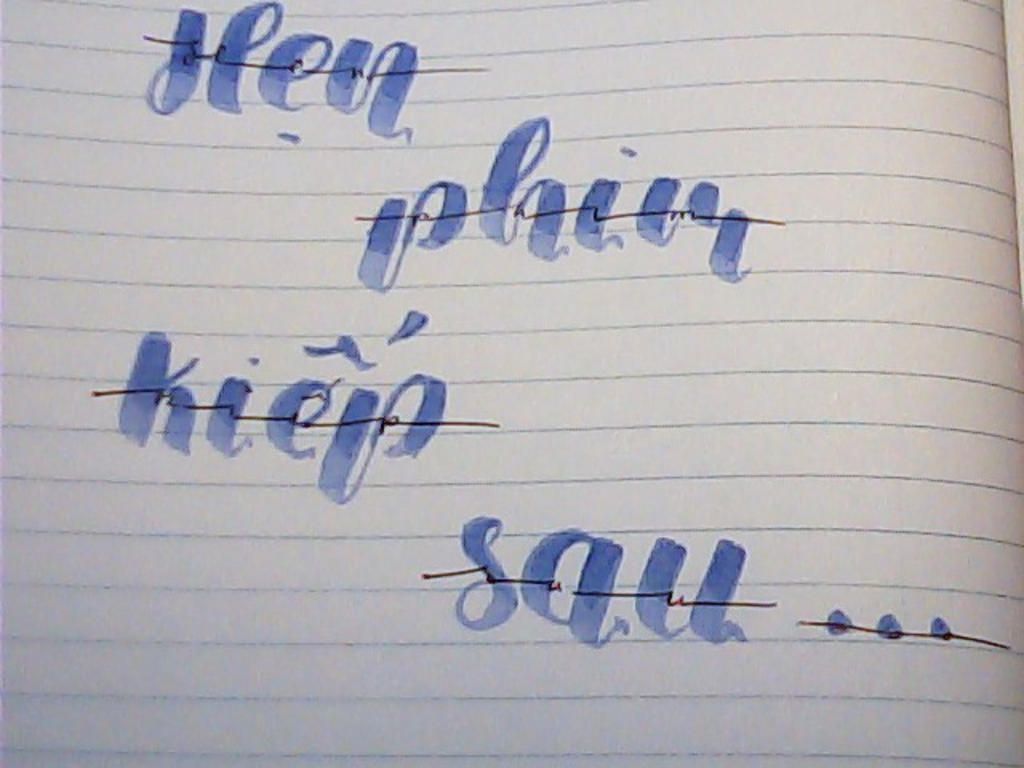 Hẹn
phin
kiếp
sau ...